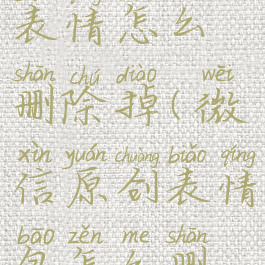 表情怎么
shān chú diào wēi
删除掉(微
xìn yuán chuàng biǎo qíng
信原创表情
bāo zěn me shān
包怎么删